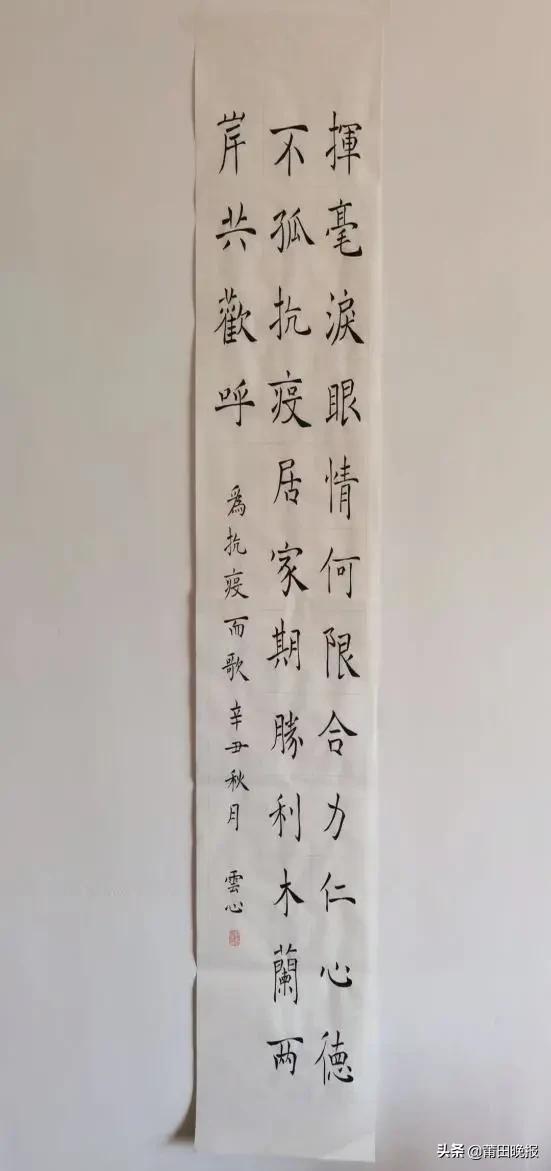 揮毫淚眼情何限合力仁心德
不孤抗疫居家期勝利木蘭两
岸共歡呼
為抗疫而歌辛丑秋月 雲心
头条 @莆田晚报